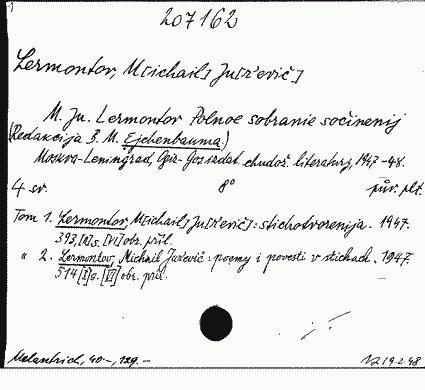 1
207162
Lermontov, M[ichail] Ju[r'evič]
M. Ju. Lermontov Polnoe sobranie sočinenij
(Redakcija B. M. Ejchenbauma.)
Moskva-Leningrad, Ogiz-Gosizdat. chudož. literatury, 1947-48.
4 sv. 8° pův. plt.
Tom 1. Lermontov, M[ichail] Ju[r'evič]: stichotvorenija. 1947.
393,[II]s. [VI] obr. příl.
" 2. Lermontov, Michail Jur'evič: poemy i povesti v stichach. 1947.
514 [I] s. [V] obr. příl.
Melantrich, 40-, 129.-
19.2.48